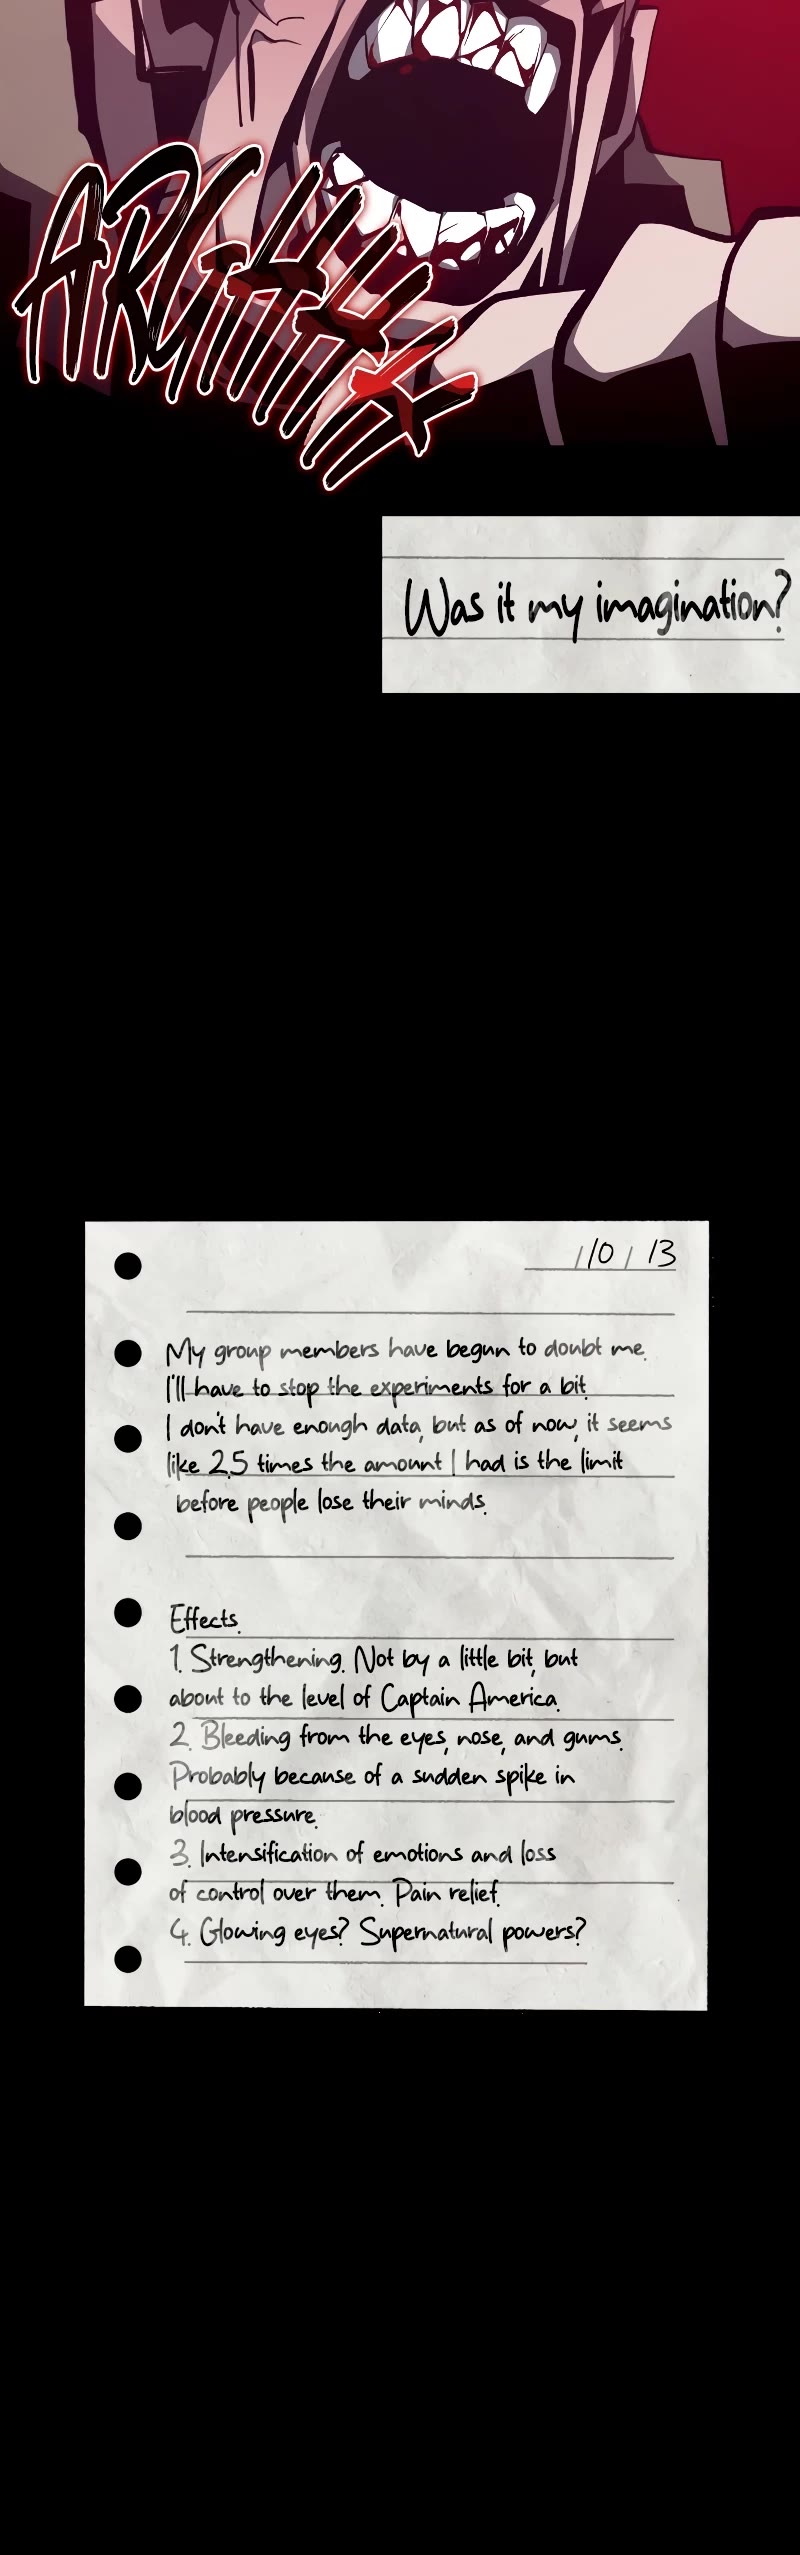 ARGHHH
Was it my imagination?
/10 / 13
My group members have begun to doubt me.
I'll have to stop the experiments for a bit.
I don't have enough data, but as of now, it seems
like 2.5 times the amount I had is the limit
before people lose their minds.
Effects.
1. Strengthening. Not by a little bit, but
about to the level of Captain America.
2. Bleeding from the eyes, nose, and gums.
Probably because of a sudden spike in
blood pressure.
3. Intensification of emotions and loss
of control over them. Pain relief.
4. Glowing eyes? Supernatural powers?